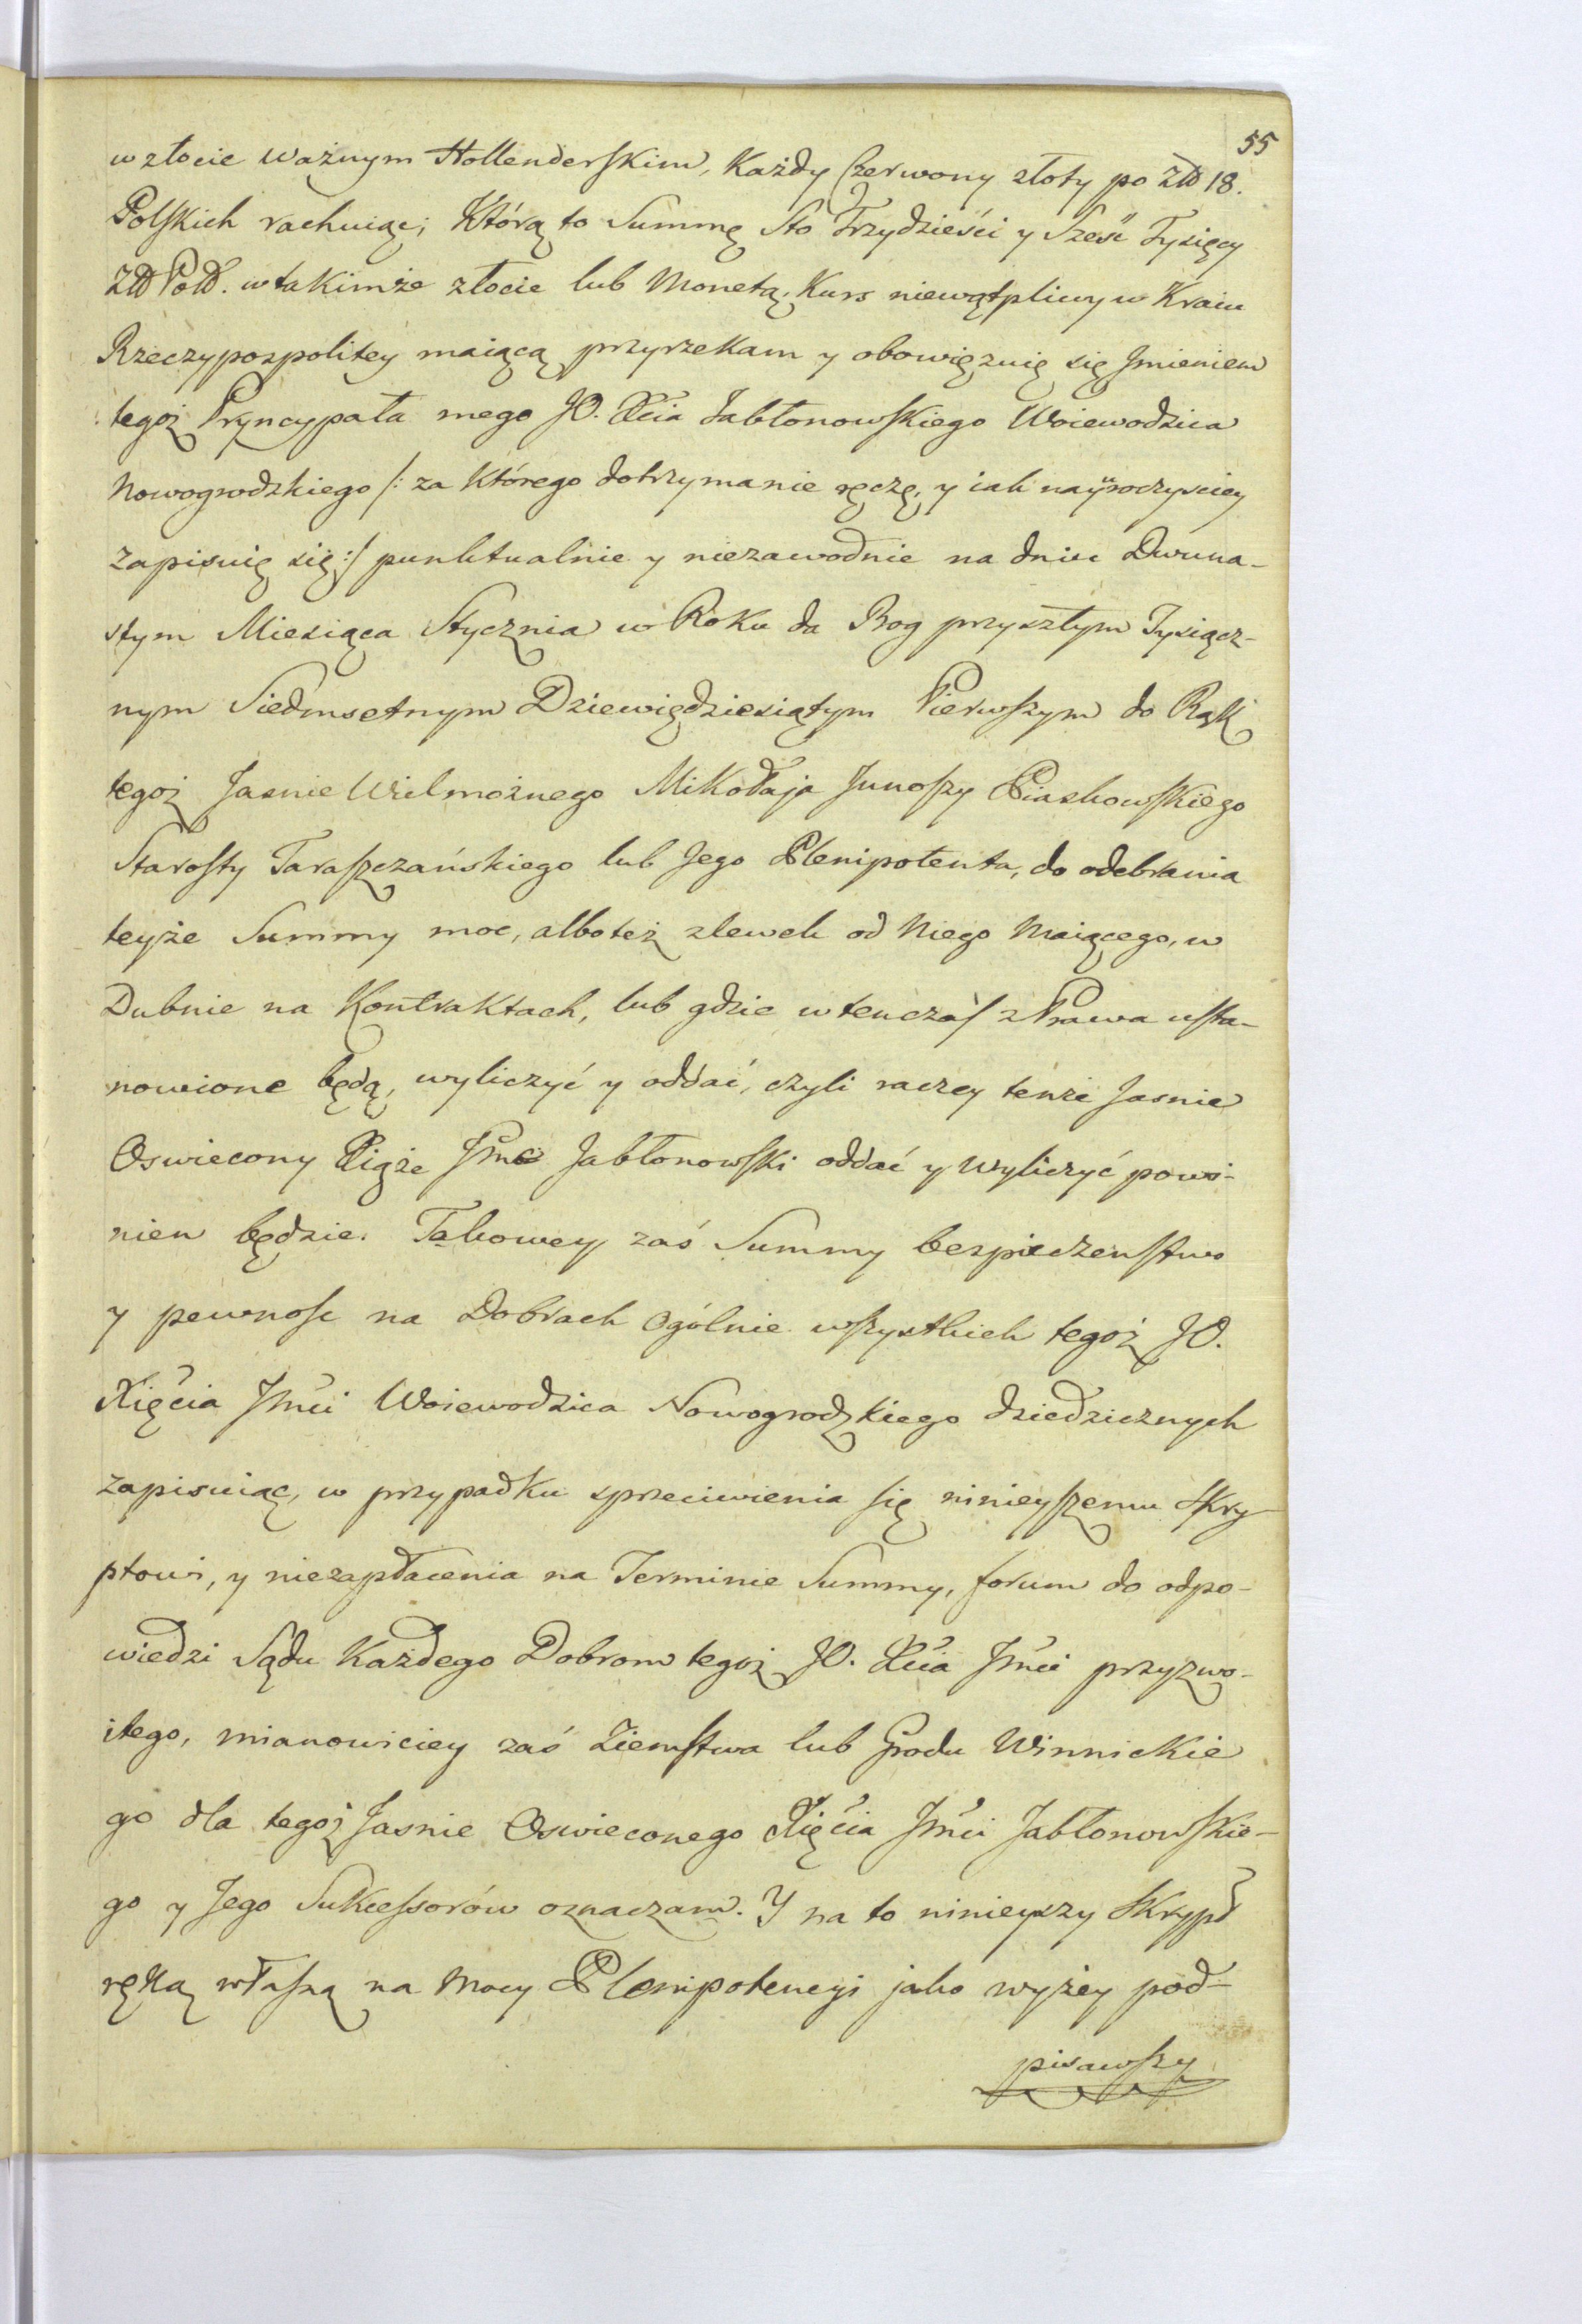 55
w złocie ważnym Hollenderskim, Każdy Czerwony złoty po Złł 18.
Polskich rachuiąc; Którą to Summę Sto Trzydzieści y Sześć Tysięcy
Złł Poll. w takimże złocie lub Monetą, Kurs niewątpliwy w Kraiu
Rzeczypospolitey maiącą przyrzekam y obowięzuię się Jmieniem
tegoż Pryncypała mego JO. Xcia Jabłonowskiego Woiewodzica
Nowogrodzkiego /: za Którego dotrzymanie ręczę, y iak nayuroczyściey
zapisuię się :/ punktualnie y niezawodnie na dniu Dwuna-
stym Miesiąca Stycznia w Roku da Bog przyszłym Tysiącz-
nym Siedmsetnym Dziewiędziesiątym Pierwszym do Rąk
tegoż Jasnie Wielmożnego Mikołaja Junoszy Piaskowskiego
Starosty Taraszczańskiego lub Jego Plenipotenta, do odebrania
teyże Summy moc, albo też zlewek od Niego Maiącego, w
Dubnie na Kontraktach, lub gdzie w tenczas z Prawa usta-
nowione będą, wyliczyć y oddać, czyli raczey tenże Jasnie
Oswiecony Xiąże Jmć Jabłonowski oddać y wyliczyć powi-
nien będzie. Takowey zaś Summy bezpieczenstwo
y pewnosc na Dobrach Ogólnie wszystkich tegoż JO.
Xięcia Jmci Woiewodzica Nowogrodzkiego dziedzicznych
zapisuiąc, w przypadku sprzeciwienia się ninieyszemu Skry-
ptowi, y niezapłacenia na Terminie Summy, forum do odpo-
wiedzi Sądu Każdego Dobrom tegoż JO. Xcia Jmci przyzwo-
itego, mianowiciey zaś Ziemstwa lub Grodu Winnickie
go dla tegoż Jasnie Oswieconego Xięcia Jmci Jabłonowskie-
go y Jego Sukcessorów oznaczam. Y na to ninieyszy Skrypt
ręką własną na Mocy Plenipotencyi jako wyżey pod-
pisawszy